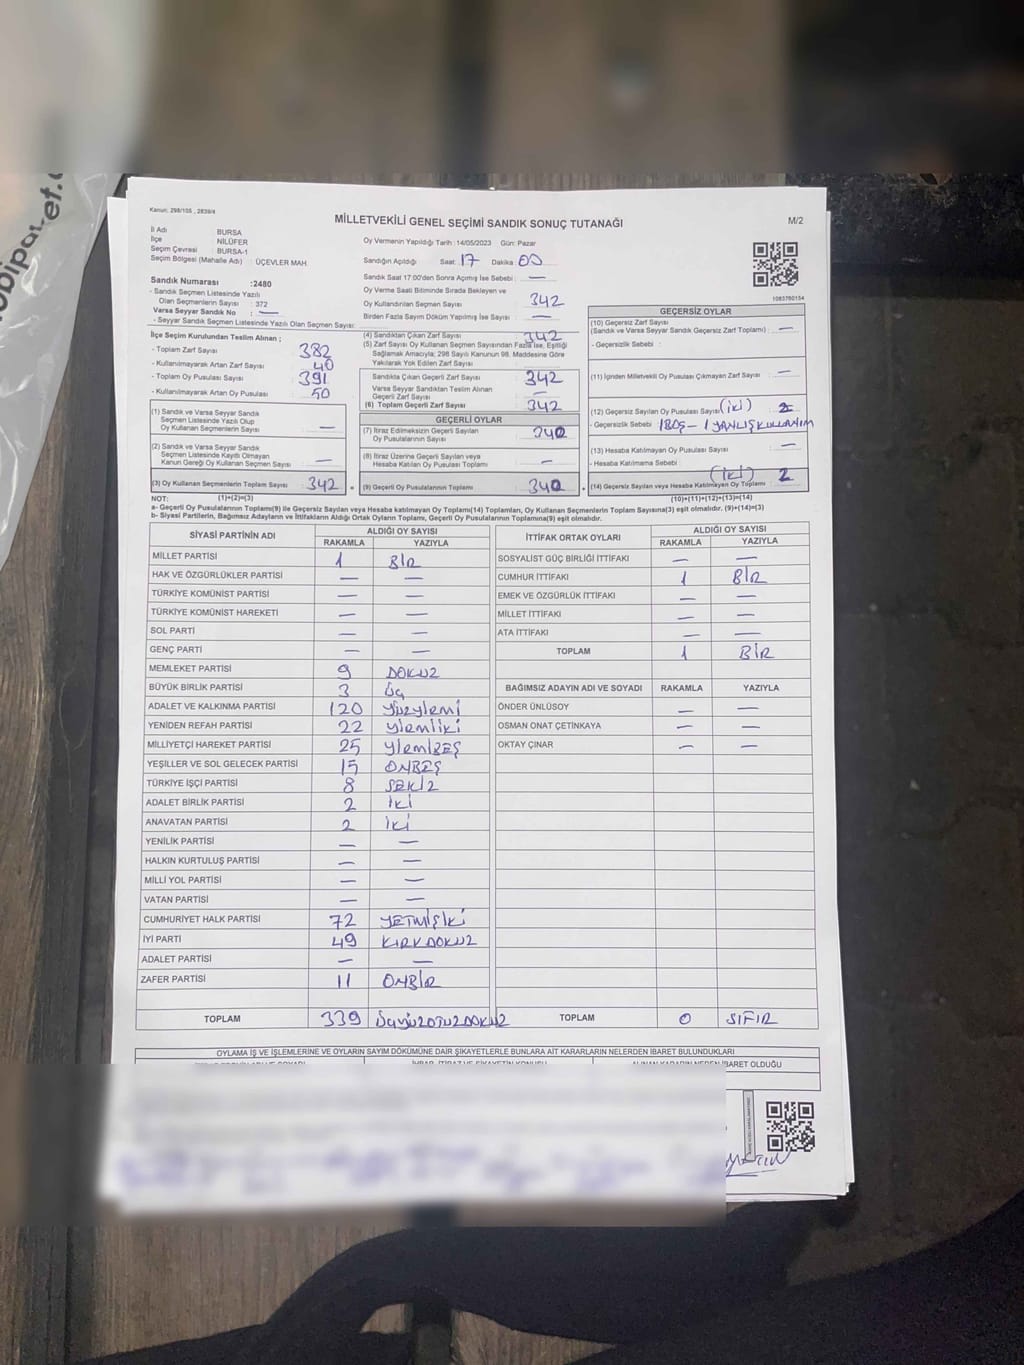 obipaket.c
Kanun: 298/105 , 2839/4
MİLLETVEKİLİ GENEL SEÇİMİ SANDIK SONUÇ TUTANAĞI
M/2
İl Adı BURSA
İlçe NİLÜFER
Seçim Çevresi BURSA-1
Seçim Bölgesi (Mahalle Adı) : ÜÇEVLER MAH
Oy Vermenin Yapıldığı Tarih : 14/05/2023 Gün: Pazar
Sandığın Açıldığı Saat: 17 Dakika: 00
Sandık Saat 17:00'den Sonra Açılmış İse Sebebi : —
Oy Verme Saati Bitiminde Sırada Bekleyen ve
Oy Kullandırılan Seçmen Sayısı 342
Birden Fazla Sayım Döküm Yapılmış İse Sayısı : —
1083760154
Sandık Numarası :2480
- Sandık Seçmen Listesinde Yazılı
Olan Seçmenlerin Sayısı : 372
Varsa Seyyar Sandık No : —
- Seyyar Sandık Seçmen Listesinde Yazılı Olan Seçmen Sayısı:
İlçe Seçim Kurulundan Teslim Alınan ;
- Toplam Zarf Sayısı 382
- Kullanılmayarak Artan Zarf Sayısı 40
- Toplam Oy Pusulası Sayısı 391
- Kullanılmayarak Artan Oy Pusulası Sayısı 50
(1) Sandık ve Varsa Seyyar Sandık
Seçmen Listesinde Yazılı Olup
Oy Kullanan Seçmenlerin Sayısı —
(2) Sandık ve Varsa Seyyar Sandık
Seçmen Listesinde Kaydı Olmayan
Kanun Gereği Oy Kullanan Seçmen Sayısı —
(3) Oy Kullanan Seçmenlerin Toplam Sayısı 342 =
(4) Sandıktan Çıkan Zarf Sayısı 342
(5) Zarf Sayısı Oy Kullanan Seçmen Sayısından Fazla İse, Eşitliği
Sağlamak Amacıyla; 298 Sayılı Kanunun 98. Maddesine Göre
Yakılarak Yok Edilen Zarf Sayısı
Sandıkta Çıkan Geçerli Zarf Sayısı 342
Varsa Seyyar Sandıktan Teslim Alınan
Geçerli Zarf Sayısı —
(6) Toplam Geçerli Zarf Sayısı 342
GEÇERLİ OYLAR
(7) İtiraz Edilmeksizin Geçerli Sayılan
Oy Pusulalarının Sayısı 340
(8) İtiraz Üzerine Geçerli Sayılan veya
Hesaba Katılan Oy Pusulası Toplamı —
(9) Geçerli Oy Pusulalarının Toplamı 340 +
GEÇERSİZ OYLAR
(10) Geçersiz Zarf Sayısı
(Sandık ve Varsa Seyyar Sandık Geçersiz Zarf Toplamı) : —
- Geçersizlik Sebebi :
(11) İçinden Milletvekili Oy Pusulası Çıkmayan Zarf Sayısı : —
(12) Geçersiz Sayılan Oy Pusulası Sayısı (iki) : 2
- Geçersizlik Sebebi 1 BOŞ – 1 YANLIŞ KULLANIM
(13) Hesaba Katılmayan Oy Pusulası Sayısı —
- Hesaba Katılmama Sebebi :
(14) Geçersiz Sayılan veya Hesaba Katılmayan Oy Toplamı (iki) : 2
NOT: (1)+(2)=(3) (10)+(11)+(12)+(13)=(14)
a- Geçerli Oy Pusulalarının Toplamı(9) ile Geçersiz Sayılan veya Hesaba Katılmayan Oy Toplamı(14) Toplamları, Oy Kullanan Seçmenlerin Toplam Sayısına(3) eşit olmalıdır. (9)+(14)=(3)
b- Siyasi Partilerin, Bağımsız Adayların ve İttifakların Aldığı Ortak Oyların Toplamı, Geçerli Oy Pusulalarının Toplamına(9) eşit olmalıdır.
SİYASİ PARTİNİN ADI ALDIĞI OY SAYISI
RAKAMLA YAZIYLA
MİLLET PARTİSİ 1 BİR
HAK VE ÖZGÜRLÜKLER PARTİSİ — —
TÜRKİYE KOMÜNİST PARTİSİ — —
TÜRKİYE KOMÜNİST HAREKETİ — —
SOL PARTİ — —
GENÇ PARTİ — —
MEMLEKET PARTİSİ 9 DOKUZ
BÜYÜK BİRLİK PARTİSİ 3 üç
ADALET VE KALKINMA PARTİSİ 120 yüzyirmi
YENİDEN REFAH PARTİSİ 22 yirmiiki
MİLLİYETÇİ HAREKET PARTİSİ 25 yirmiBEŞ
YEŞİLLER VE SOL GELECEK PARTİSİ 15 ONBEŞ
TÜRKİYE İŞÇİ PARTİSİ 8 SEKİZ
ADALET BİRLİK PARTİSİ 2 iki
ANAVATAN PARTİSİ 2 iki
YENİLİK PARTİSİ — —
HALKIN KURTULUŞ PARTİSİ — —
MİLLİ YOL PARTİSİ — —
VATAN PARTİSİ — —
CUMHURİYET HALK PARTİSİ 72 YETMİŞİKİ
İYİ PARTİ 49 KIRKDOKUZ
ADALET PARTİSİ — —
ZAFER PARTİSİ 11 ONBİR
TOPLAM 339 üçyüzOTUZDOKUZ
İTTİFAK ORTAK OYLARI ALDIĞI OY SAYISI
RAKAMLA YAZIYLA
SOSYALİST GÜÇ BİRLİĞİ İTTİFAKI — —
CUMHUR İTTİFAKI 1 BİR
EMEK VE ÖZGÜRLÜK İTTİFAKI — —
MİLLET İTTİFAKI — —
ATA İTTİFAKI — —
TOPLAM 1 BİR
BAĞIMSIZ ADAYIN ADI VE SOYADI RAKAMLA YAZIYLA
ÖNDER ÜNLÜSOY — —
OSMAN ONAT ÇETİNKAYA — —
OKTAY ÇINAR — —
TOPLAM 0 SIFIR
OYLAMA İŞ VE İŞLEMLERİNE VE OYLARIN SAYIM DÖKÜMÜNE DAİR ŞİKAYETLERLE BUNLARA AİT KARARLARIN NELERDEN İBARET BULUNDUKLARI